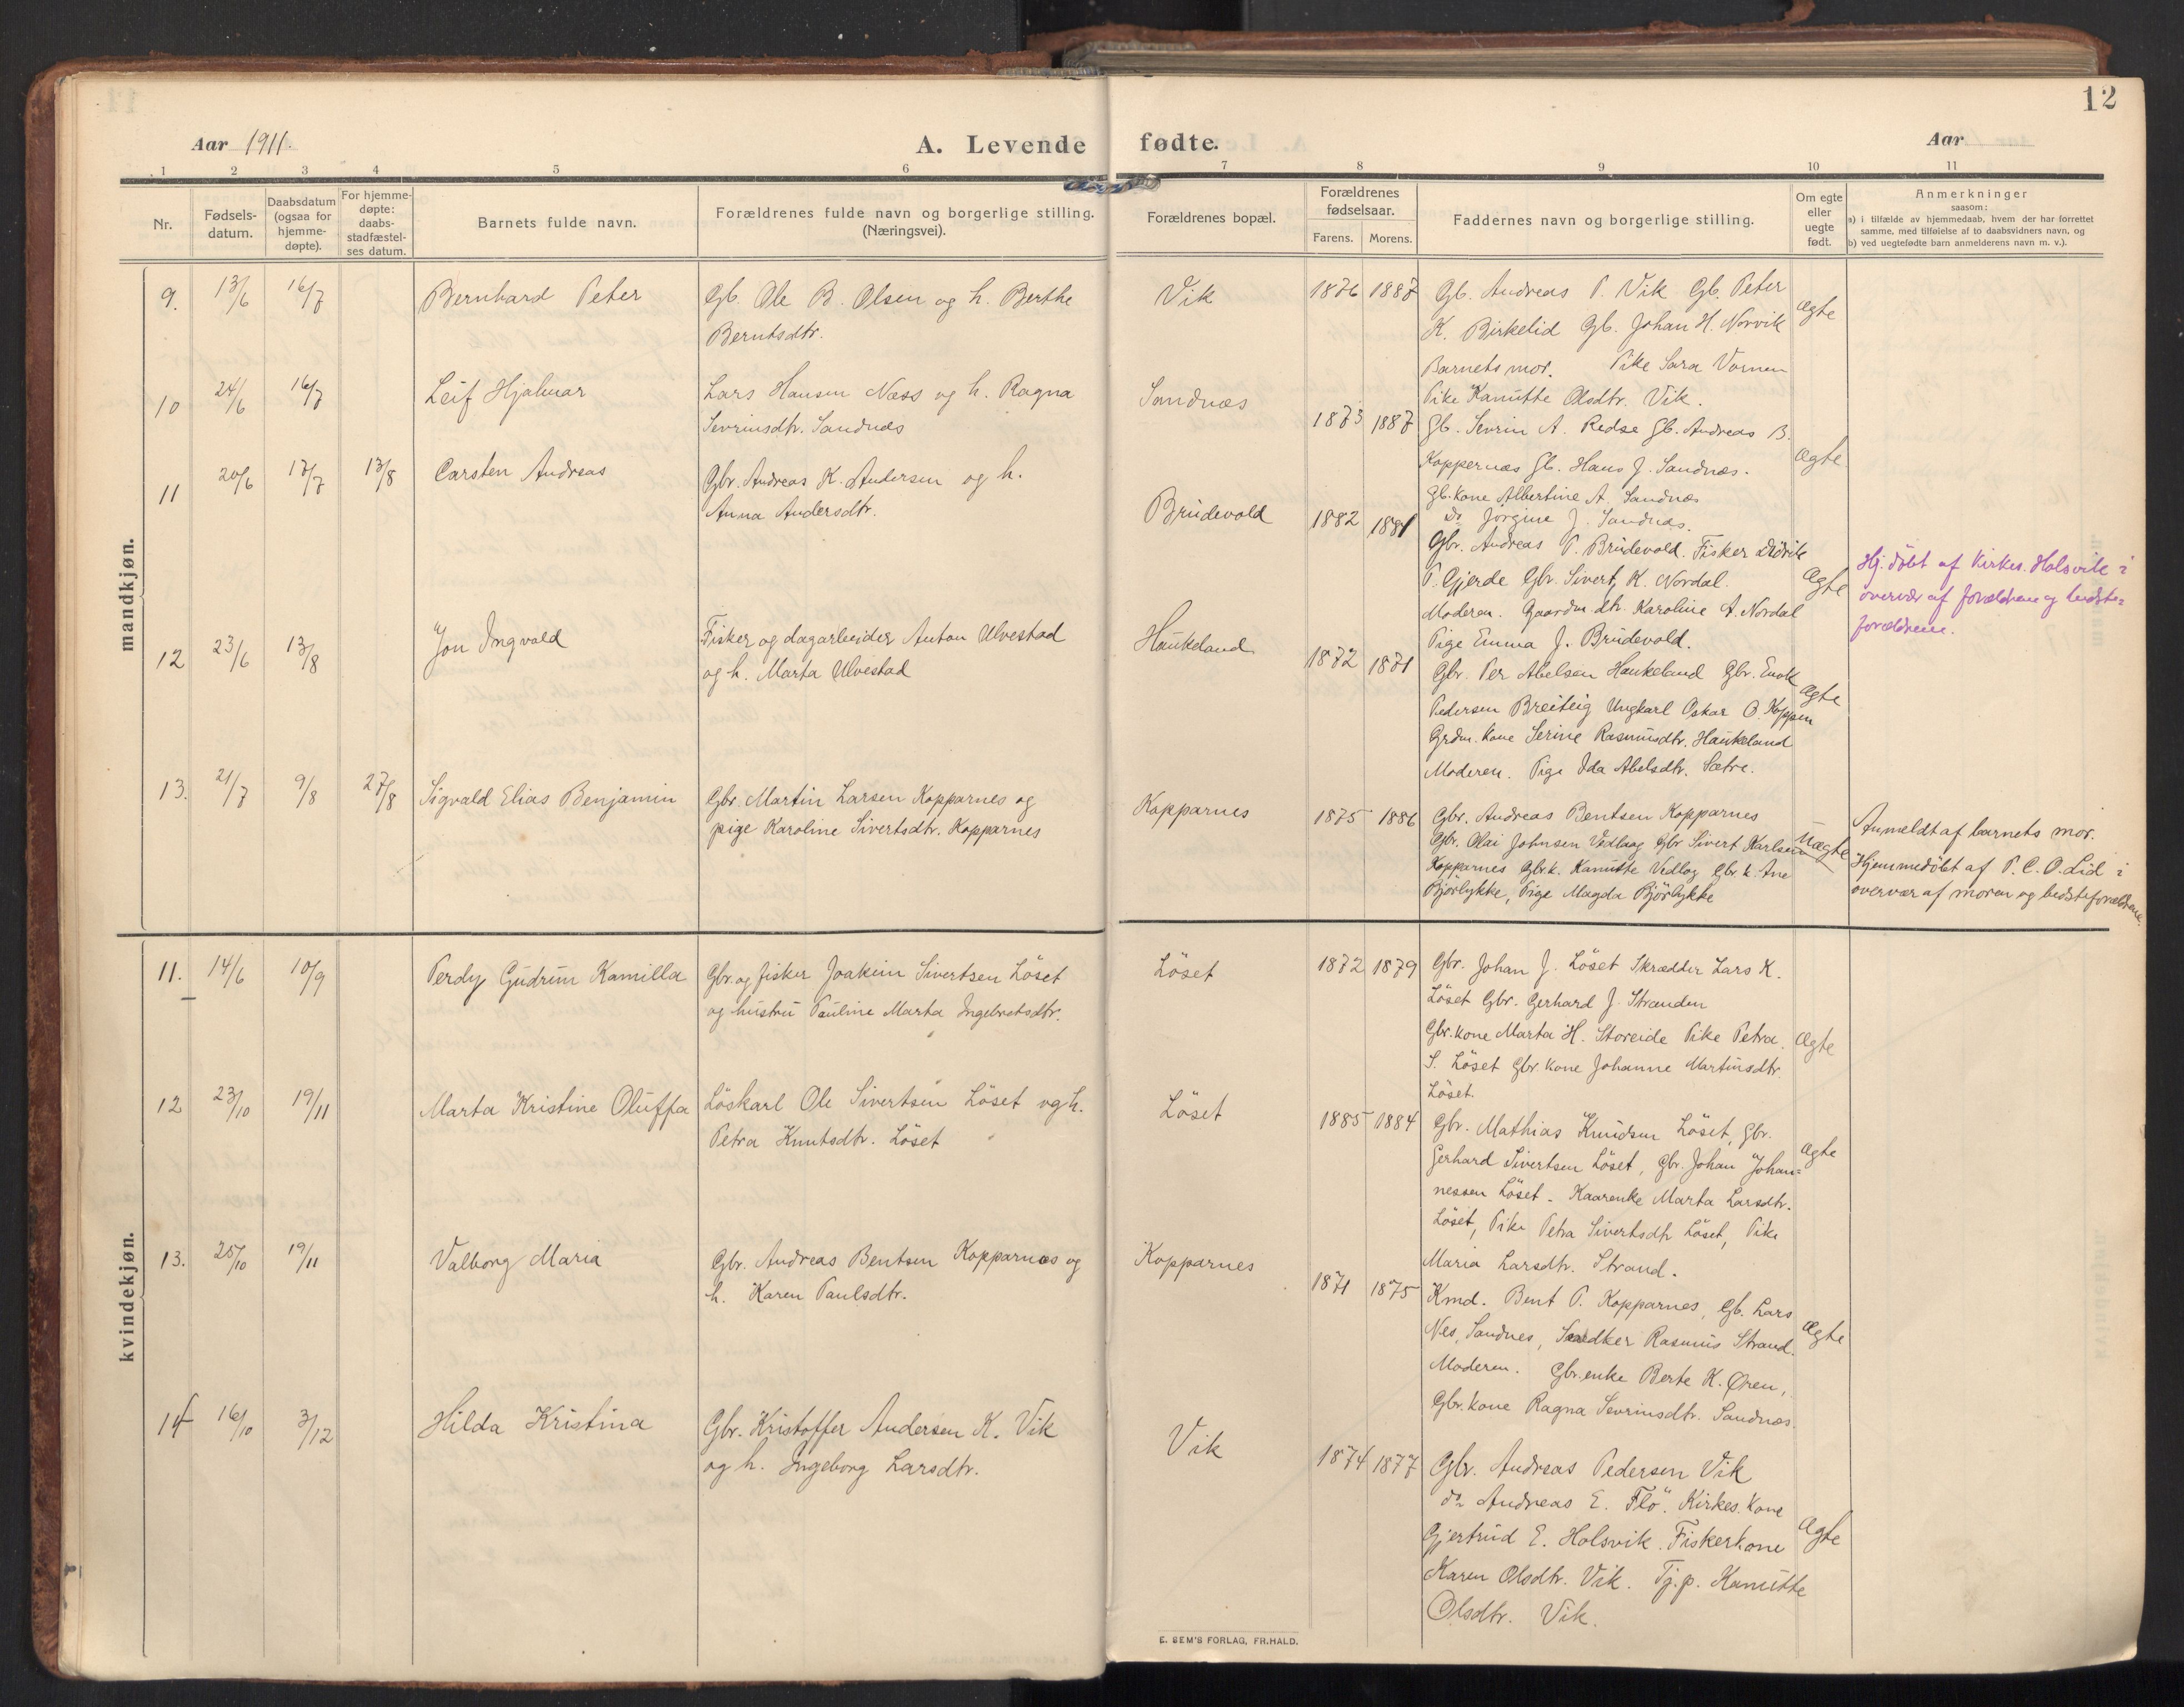 12
Aar 1911.
A. Levende fødte.
Aar
1 2 3 4 5 6 7 8 9 10 11
Nr.
Fødsels-
datum.
Daabsdatum
(ogsaa for
hjemme-
døpte).
For hjemme-
døpte:
daabs-
stadfæstel-
ses datum.
Barnets fulde navn.
Forældrenes fulde navn og borgerlige stilling.
(Næringsvei).
Forældrenes bopæl.
Forældrenes
fødselsaar.
Farens. Morens.
Faddernes navn og borgerlige stilling.
Om egte
eller
uegte
født.
Anmerkninger
saasom:
a) i tilfælde av hjemmedaab, hvem der har forrettet
samme, med tilføielse af to daabsvidners navn, og
b) ved uegtefødte barn anmelderens navn m. v.).
mandkjøn.
9. 13/6 16/7
Bernhard Peter
Gb. Ole B. Olsen og h. Berthe
Berntsdtr.
Vik
1876 1887
Gb. Andreas P. Vik Gb. Peter
K. Birkelid Gb. Johan H. Norvik
Barnets mor. Pike Sara Vornen
Pike Kanutte Olsdtr. Vik.
Ægte
10 24/6 16/7
Leif Hjalmar
Lars Hansen Næss og h. Ragna
Sevrinsdtr. Sandnæs
Sandnæs
1873 1887
Gb. Sevrin A. Redse Gb. Andreas B.
Koppernæs Gb. Hans J. Sandnæs.
Gb. kone Albertine A. Sandnæs
Do Jørgine J. Sandnæs.
Ægte
11 20/6 17/7 13/8
Carsten Andreas
Gbr. Andreas K. Andersen og h.
Anna Andersdtr.
Brudevold
1882 1881
Gbr. Andreas P. Brudevold. Fisker Didrik
P. Gjerde Gbr. Sivert K. Nordal.
Moderen. Gaardm. dtr. Karoline A. Nordal
Pige Emma J. Brudevold.
Ægte
Hj. döbt af Kirkes. Holsvik i
overvær af forældrene og bedste-
forældrene.
12 23/6 13/8
Jon Ingvald
Fisker og dagarbeider Anton Ulvestad
og h. Marta Ulvestad
Haukeland
1872 1871
Gbr. Per Abelsen Haukeland Gbr. Enok
Pedersen Breiteig Ungkarl Oskar O. Koppen
Grdm. kone Serine Rasmusdtr. Haukeland
Moderen. Pige Ida Abelsdtr. Sætre.
Ægte
13. 21/7 9/8 27/8
Sigvald Elias Benjamin
Gbr. Martin Larsen Kopparnes og
pige Karoline Sivertsdtr. Kopparnes
Kopparnes
1875 1886
Gbr. Andreas Bentsen Kopparnes
Gbr. Olai Johnsen Vedlaag Gbr Sivert Karlsen
Kopparnes Gbr.k. Kanutte Vedlog Gbr. k. Ane
Bjørlykke, Pige Magda Bjørlykke
Uægte
Anmeldt af barnets mor.
Hjemmedöbt af P. C. O. Lid i
overvær af moren og bedsteforældrene.
kvindekjøn.
11. 14/6 10/9
Perdy Gudrun Kamilla
Gbr. og fisker Joakim Sivertsen Löset
og hustru Pauline Marta Ingebretsdtr.
Löset
1872 1879
Gbr. Johan J. Löset Skrædder Lars K.
Löset Gbr. Gerhard J. Stranden
Gbr. kone Marta H. Storeide Pike Petra
S. Löset Gbr. kone Johanne Martinsdtr.
Löset.
Ægte
12 23/10 19/11
Marta Kristine Oluffa
Löskarl Ole Sivertsen Löset og h.
Petra Knutsdtr. Löset
Löset
1885 1884
Gbr. Mathias Knudsen Löset, Gbr.
Gerhard Sivertsen Löset, Gbr. Johan Johan-
nessen Löset. Kaarenke Marta Larsdtr.
Löset, Pike Petra Sivertsdtr Löset, Pike
Maria Larsdtr. Strand.
Ægte
13. 25/10 19/11
Valborg Maria
Gbr. Andreas Bentsen Kopparnæs og
h. Karen Paulsdtr.
Kopparnes
1871 1875
Kmd. Bent P. Kopparnes, Gb. Lars
Nes, Sandnes, Snedker Rasmus Strand.
Moderen. Gbr.enke Berte K. Øren,
Gbr. kone Ragna Sevrinsdtr. Sandnæs.
Ægte
14 16/10 3/12
Hilda Kristina
Gbr. Kristoffer Andersen K. Vik
og h. Ingeborg Larsdtr.
Vik
1874 1877
Gbr. Andreas Pedersen Vik
do Andreas E. Flö. Kirkes. kone
Gjertrud E. Holsvik. Fiskerkone
Karen Olsdtr. Vik. Tj.p. Kanutte
Olsdtr. Vik.
Ægte
E. SEM'S FORLAG, FR.HALD.